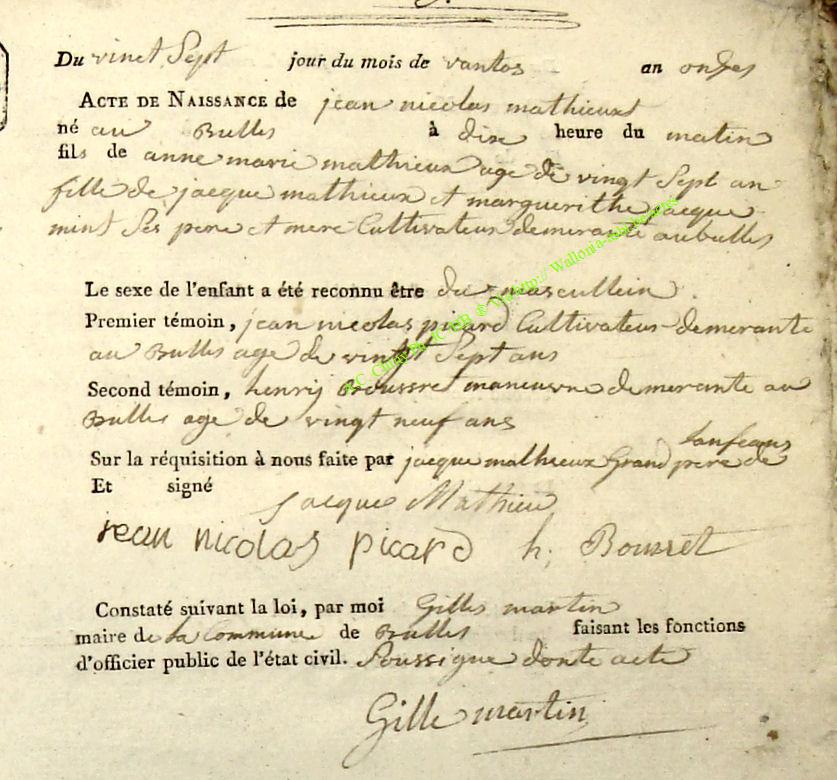 Du vinct Sept jour du mois de vantos an onses
ACTE DE NAISSANCE de jean nicolas mathieux
né au Bulles à dixe heure du matin
fils de anne marie mathieux age de vingt Sept an
fille de jacque mathieux et marguerithe jacque
mint Ses pere et mere Cultivateur demerante au bulles
Le sexe de l'enfant a été reconnu être du mascullein
Premier témoin, jean nicolas picard Cultivateur demerante
au Bulles age de vintt Sept ans
Second témoin, henrij Broussre maneuvre demerante au
Bulles age de vingt neuf ans
Sur la réquisition à nous faite par jacque mathieux Grand pere de lanfeans
Et signé
jacque Mathieu
jean nicolas picard h. Bourret
Constaté suivant la loi, par moi Gilles martin
maire de la Commune de Bulles faisant les fonctions
d'officier public de l'état civil. Soussigne donte acte
Gille martin